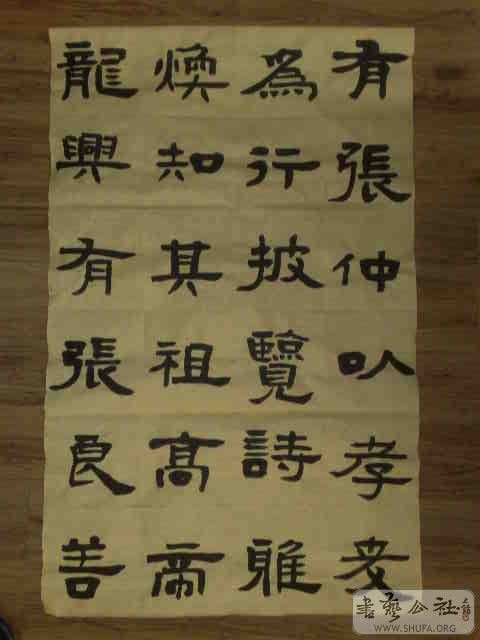 有張仲以孝友
為行披覽詩雅
煥知其祖高帝
龍興有張良善
書藝公社
WWW.SHUFA.ORG